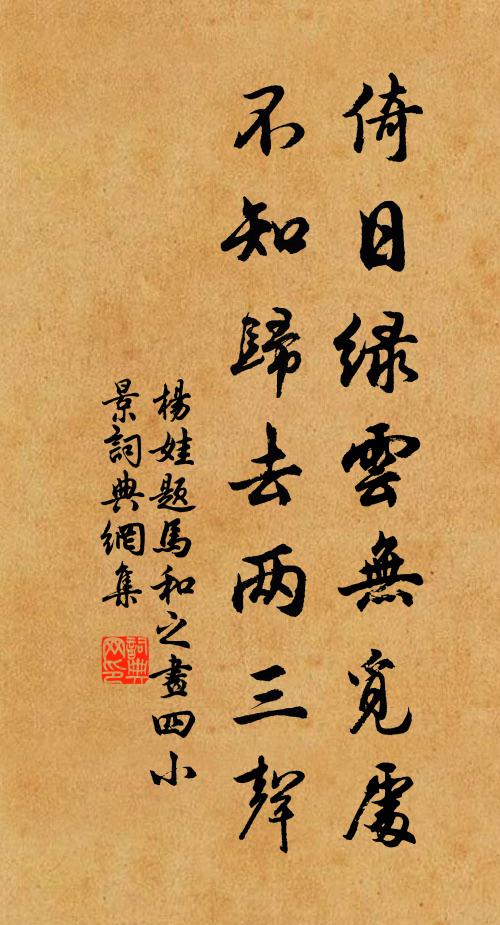 倚日綠雲無覓處
不知歸去两三聲
楊娃題馬和之畫四小
景詞典網集
詞典
网印